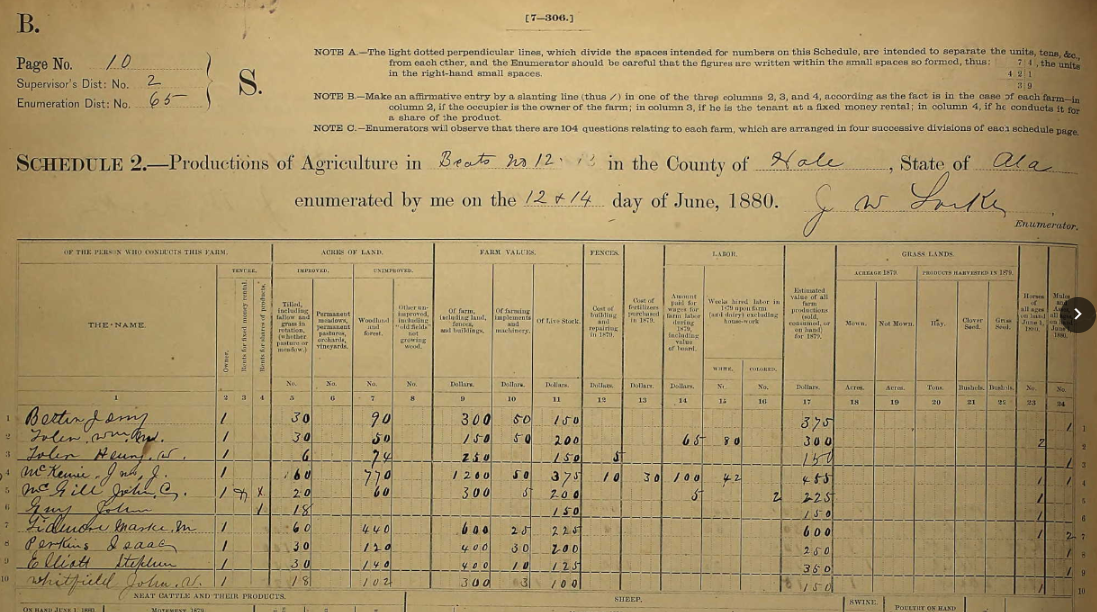 B.
[7–306.]
Page No. 10
Supervisor's Dist: No. 2
Enumeration Dist: No. 65
S.
NOTE A.—The light dotted perpendicular lines, which divide the spaces intended for numbers on this Schedule, are intended to separate the units, tens, &c.,
from each other, and the Enumerator should be careful that the figures are written within the small spaces so formed, thus: 74, the units
in the right-hand small spaces. 421
39
NOTE B.—Make an affirmative entry by a slanting line (thus /) in one of the three columns 2, 3, and 4, according as the fact is in the case of each farm—in
column 2, if the occupier is the owner of the farm; in column 3, if he is the tenant at a fixed money rental; in column 4, if he conducts it for
a share of the product.
NOTE C.—Enumerators will observe that there are 104 questions relating to each farm, which are arranged in four successive divisions of each schedule page.
SCHEDULE 2.—Productions of Agriculture in Beats No 12 13 in the County of Hale, State of Ala
enumerated by me on the 12 + 14 day of June, 1880. J W
Enumerator.
OF THE PERSON WHO CONDUCTS THIS FARM. ACRES OF LAND. FARM VALUES. FENCES. LABOR. GRASS LANDS.
TENURE. IMPROVED. UNIMPROVED. ACREAGE 1879. PRODUCTS HARVESTED IN 1879.
THE NAME.
Owner.
Rents for fixed money rental.
Rents for shares of products.
Tilled, including fallow and grass in rotation, (whether pasture or meadow.)
Permanent meadows, permanent pastures, orchards, vineyards.
Woodland and forest.
Other unimproved, including "old fields" not growing wood.
Of farm, including land, fences, and buildings.
Of farming implements and machinery.
Of Live Stock.
Cost of building and repairing in 1879.
Cost of fertilizers purchased in 1879.
Amount paid for wages for farm labor during 1879, including value of board.
Weeks hired labor in 1879 upon farm (and dairy) excluding house-work
WHITE. COLORED.
Estimated value of all farm productions (sold, consumed, or on hand) for 1879.
Mown. Not Mown. Hay. Clover Seed. Grass Seed.
Horses of all ages on hand June 1, 1880.
No. No. No. No. Dollars. Dollars. Dollars. Dollars. Dollars. Dollars. No. No. Dollars. Acres. Acres. Tons. Bushels. Bushels. No. No.
1 2 3 4 5 6 7 8 9 10 11 12 13 14 15 16 17 18 19 20 21 22 23 24
1 1 30 90 300 50 150 375 1 1
2 1 30 50 150 50 200 65 80 300 2 2
3 Henry W. 1 6 74 250 150 5 150 1 3
4 J. 1 160 770 1200 50 375 10 30 100 42 455 1 1 4
5 McGill John C. 1 20 60 300 5 200 5 2 225 1 5
6 Guy John 1 18 150 150 1 6
7 M 1 60 440 600 25 225 600 1 2 7
8 Perkins Isaac 1 30 120 400 30 200 250 1 8
9 Elliott Stephen 1 30 140 400 10 125 350 1 9
10 Whitfield John V. 1 18 102 300 3 100 150 1 10
NEAT CATTLE AND THEIR PRODUCTS. SHEEP. SWINE. POULTRY ON HAND
ON HAND JUNE 1, 1880. MOVEMENT, 1879.